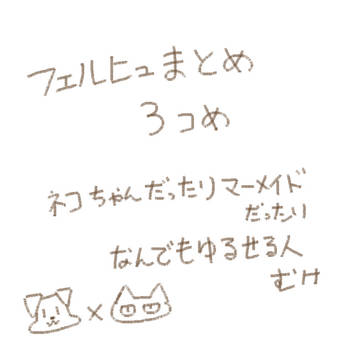 フェルヒュまとめ
3つめ
ネコちゃんだったりマーメイド
だったり
なんでもゆるせる人
むけ
×